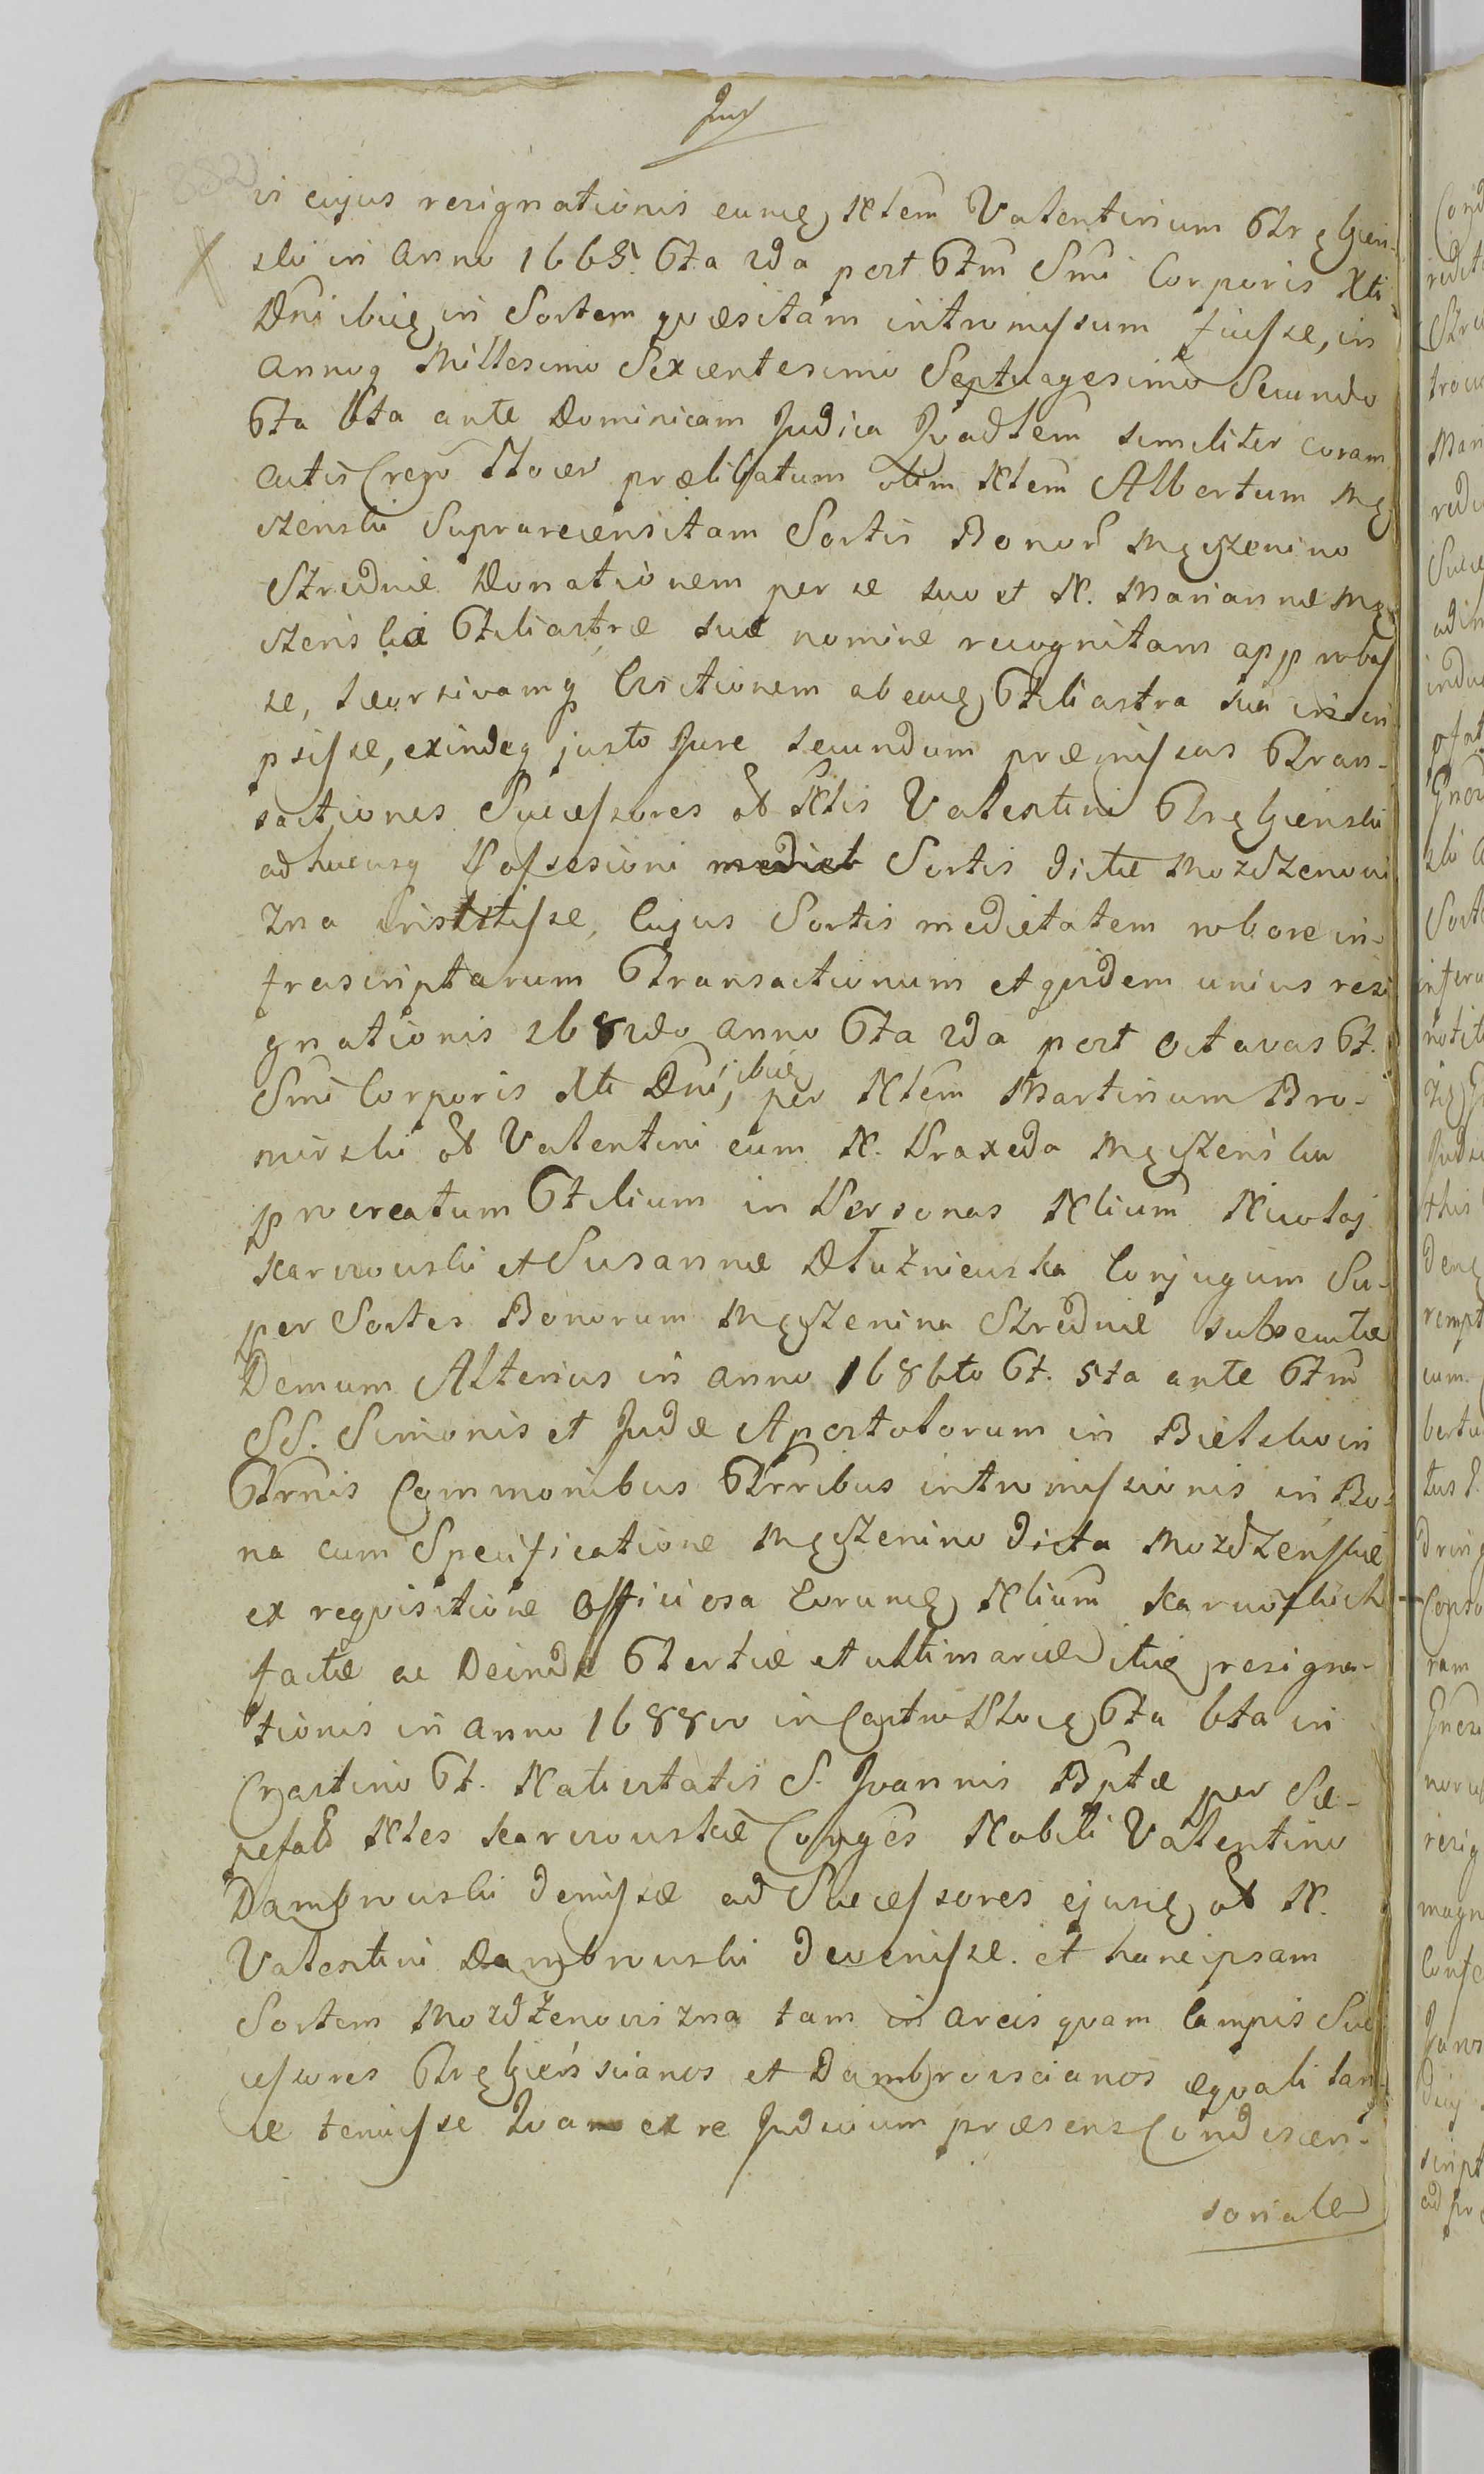 Jus
882
vi cujus resignationis eundẽ Nlem Valentinum Trębien-
ski in Anno 1665. Fta 2da post Ftm Smi Corporis Xti
Dni ibidẽ in Sortem quæsitam intromissum fuisse, in
Annoq Millesimo Sexcentesimo Septuagesimo Secundo
Fta 6ta ante Dominicam Judica Quadlem similiter coram
Actis prælibatum olim Nlem Albertum Mę
szenski Suprarecensitam Sortis Bonor Męszenino
Srednie Donationem per se suo et N. Mariannæ Mę
szenskie Filiastræ suæ nomine recognitam approbas
se, seorsivamq Evictionem ab eadẽ Filiastra sua inscri
psisse, exindeq justo Jure secundum præmissas Tran-
sactiones Successores olim Nlis Valentini Trębienski
adhucusq Possesioni mediet Sortis dictæ Mozdzenowi
zna institisse, Cujus Sortis medietatem robore in-
frascriptarum Transactionum et quidem unius resi
gnationis 1682do Anno Fta 2da post Octavas Ft.
Smi Corporis Xti Dni, ibidẽ per Nlem Martinum Bro-
mirski olim Valentini cum N. Praxeda Męszenska
procreatum Filium in Personas Nlium Nicolaj
Karwowski et Susannæ Dłużniewska Conjugum Su-
per Sortes Bonorum Męszenina Srednie subsecutæ
Demum Alterius in Anno 1686to Ft. 5ta ante Ftm
SS. Simonis et Judæ Apostolorum in Bielsko in
Trnis Commonibus Trribus intromissionis in Bo-
na cum Specificatione Męszenino dicta Mozdzenskie
ex requisitione Officiosa Eorundẽ Nlium Karwoskich
factæ ac Deinde Tertiæ et ultimariæ itidẽ resigna-
tionis in Anno 1688vo in Castro Fta 6ta in
Crastino Ft. Nativitatis S. Joannis Bptæ per Sæ-
pefatos Nles Karwowskie Conges Nobili Valentino
Dambrowski demissæ ad Successores ejusdẽ olim N.
Valentini Dambrowski devenisse. et hanc ipsam
Sortem Mozdzenowizna tam in Areis quam Campis Suc
cessores Trębienscianos et Dambrowscianos æquali lan-
ce tenuisse Quam ex re Judicium præsens Condescen-
soriale